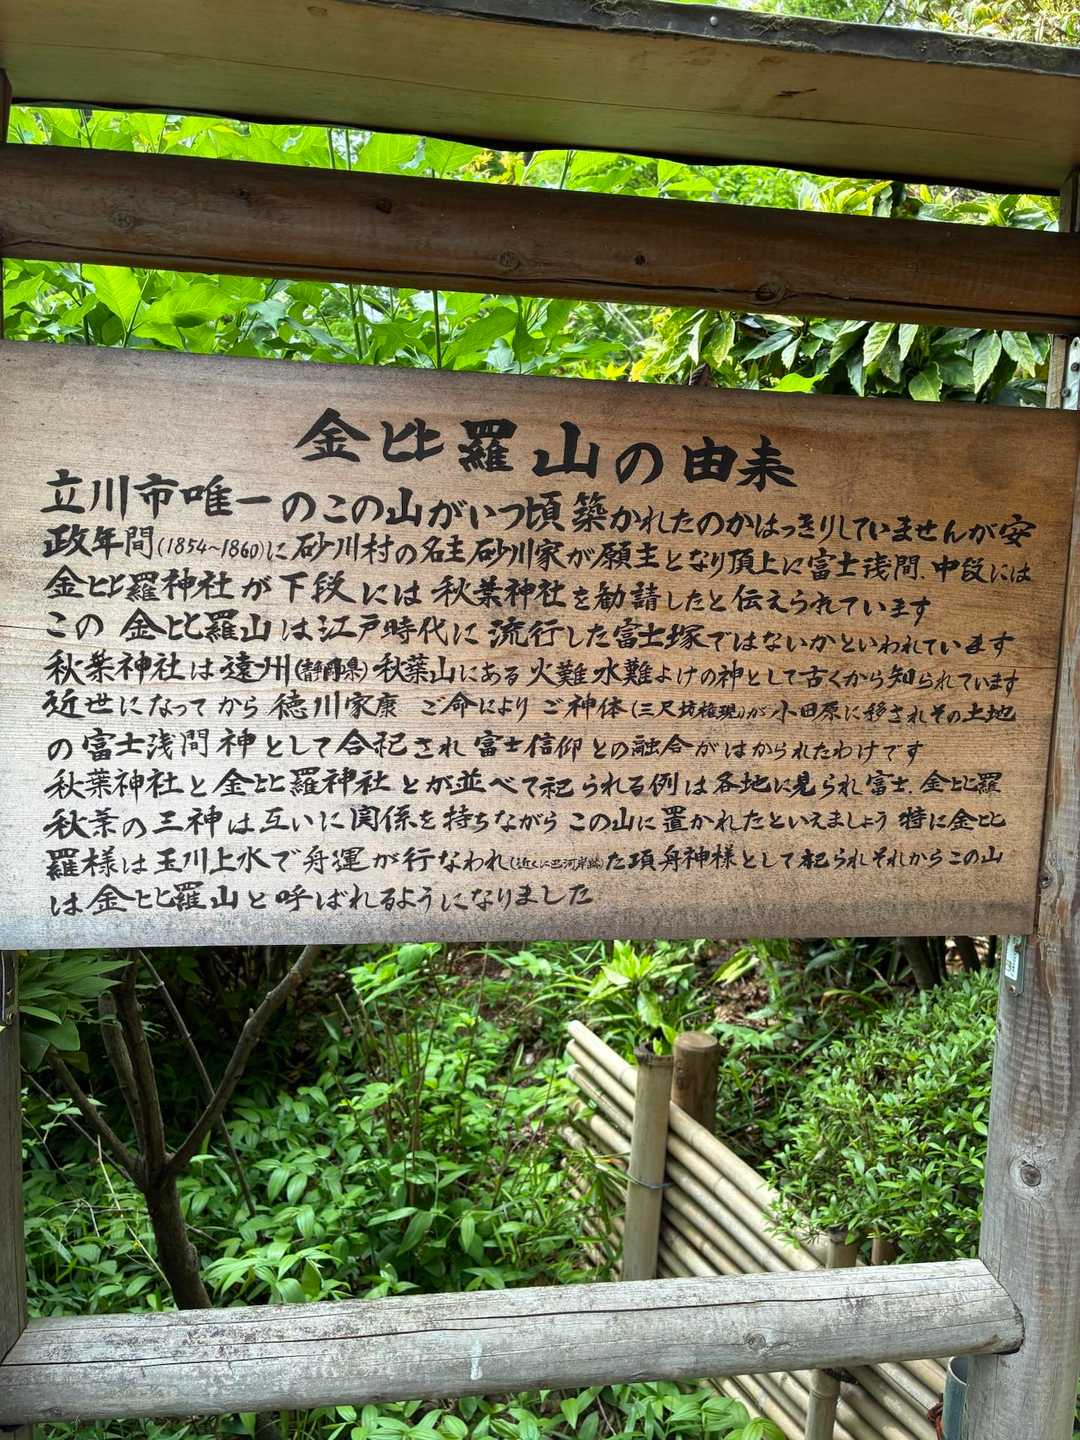 金比羅山の由来
立川市唯一のこの山がいつ頃築かれたのかはっきりしていませんが安
政年間(1854~1860)に砂川村の名主砂川家が願主となり頂上に富士浅間、中段には
金比羅神社が下段には秋葉神社を勧請したと伝えられています
この金比羅山は江戸時代に流行した富士塚ではないかといわれています
秋葉神社は遠州(静岡県)秋葉山にある火難水難よけの神として古くから知られています
近世になってから徳川家康ご命によりご神体(三尺坊権現)が小田原に移されその土地
の富士浅間神として合祀され富士信仰との融合がはかられたわけです
秋葉神社と金比羅神社とが並べて祀られる例は各地に見られ富士、金比羅
秋葉の三神は互いに関係を持ちながらこの山に置かれたといえましょう特に金比
羅様は玉川上水で舟運が行なわれ(近くに巴河岸跡)た頃舟神様として祀られそれからこの山
は金比羅山と呼ばれるようになりました